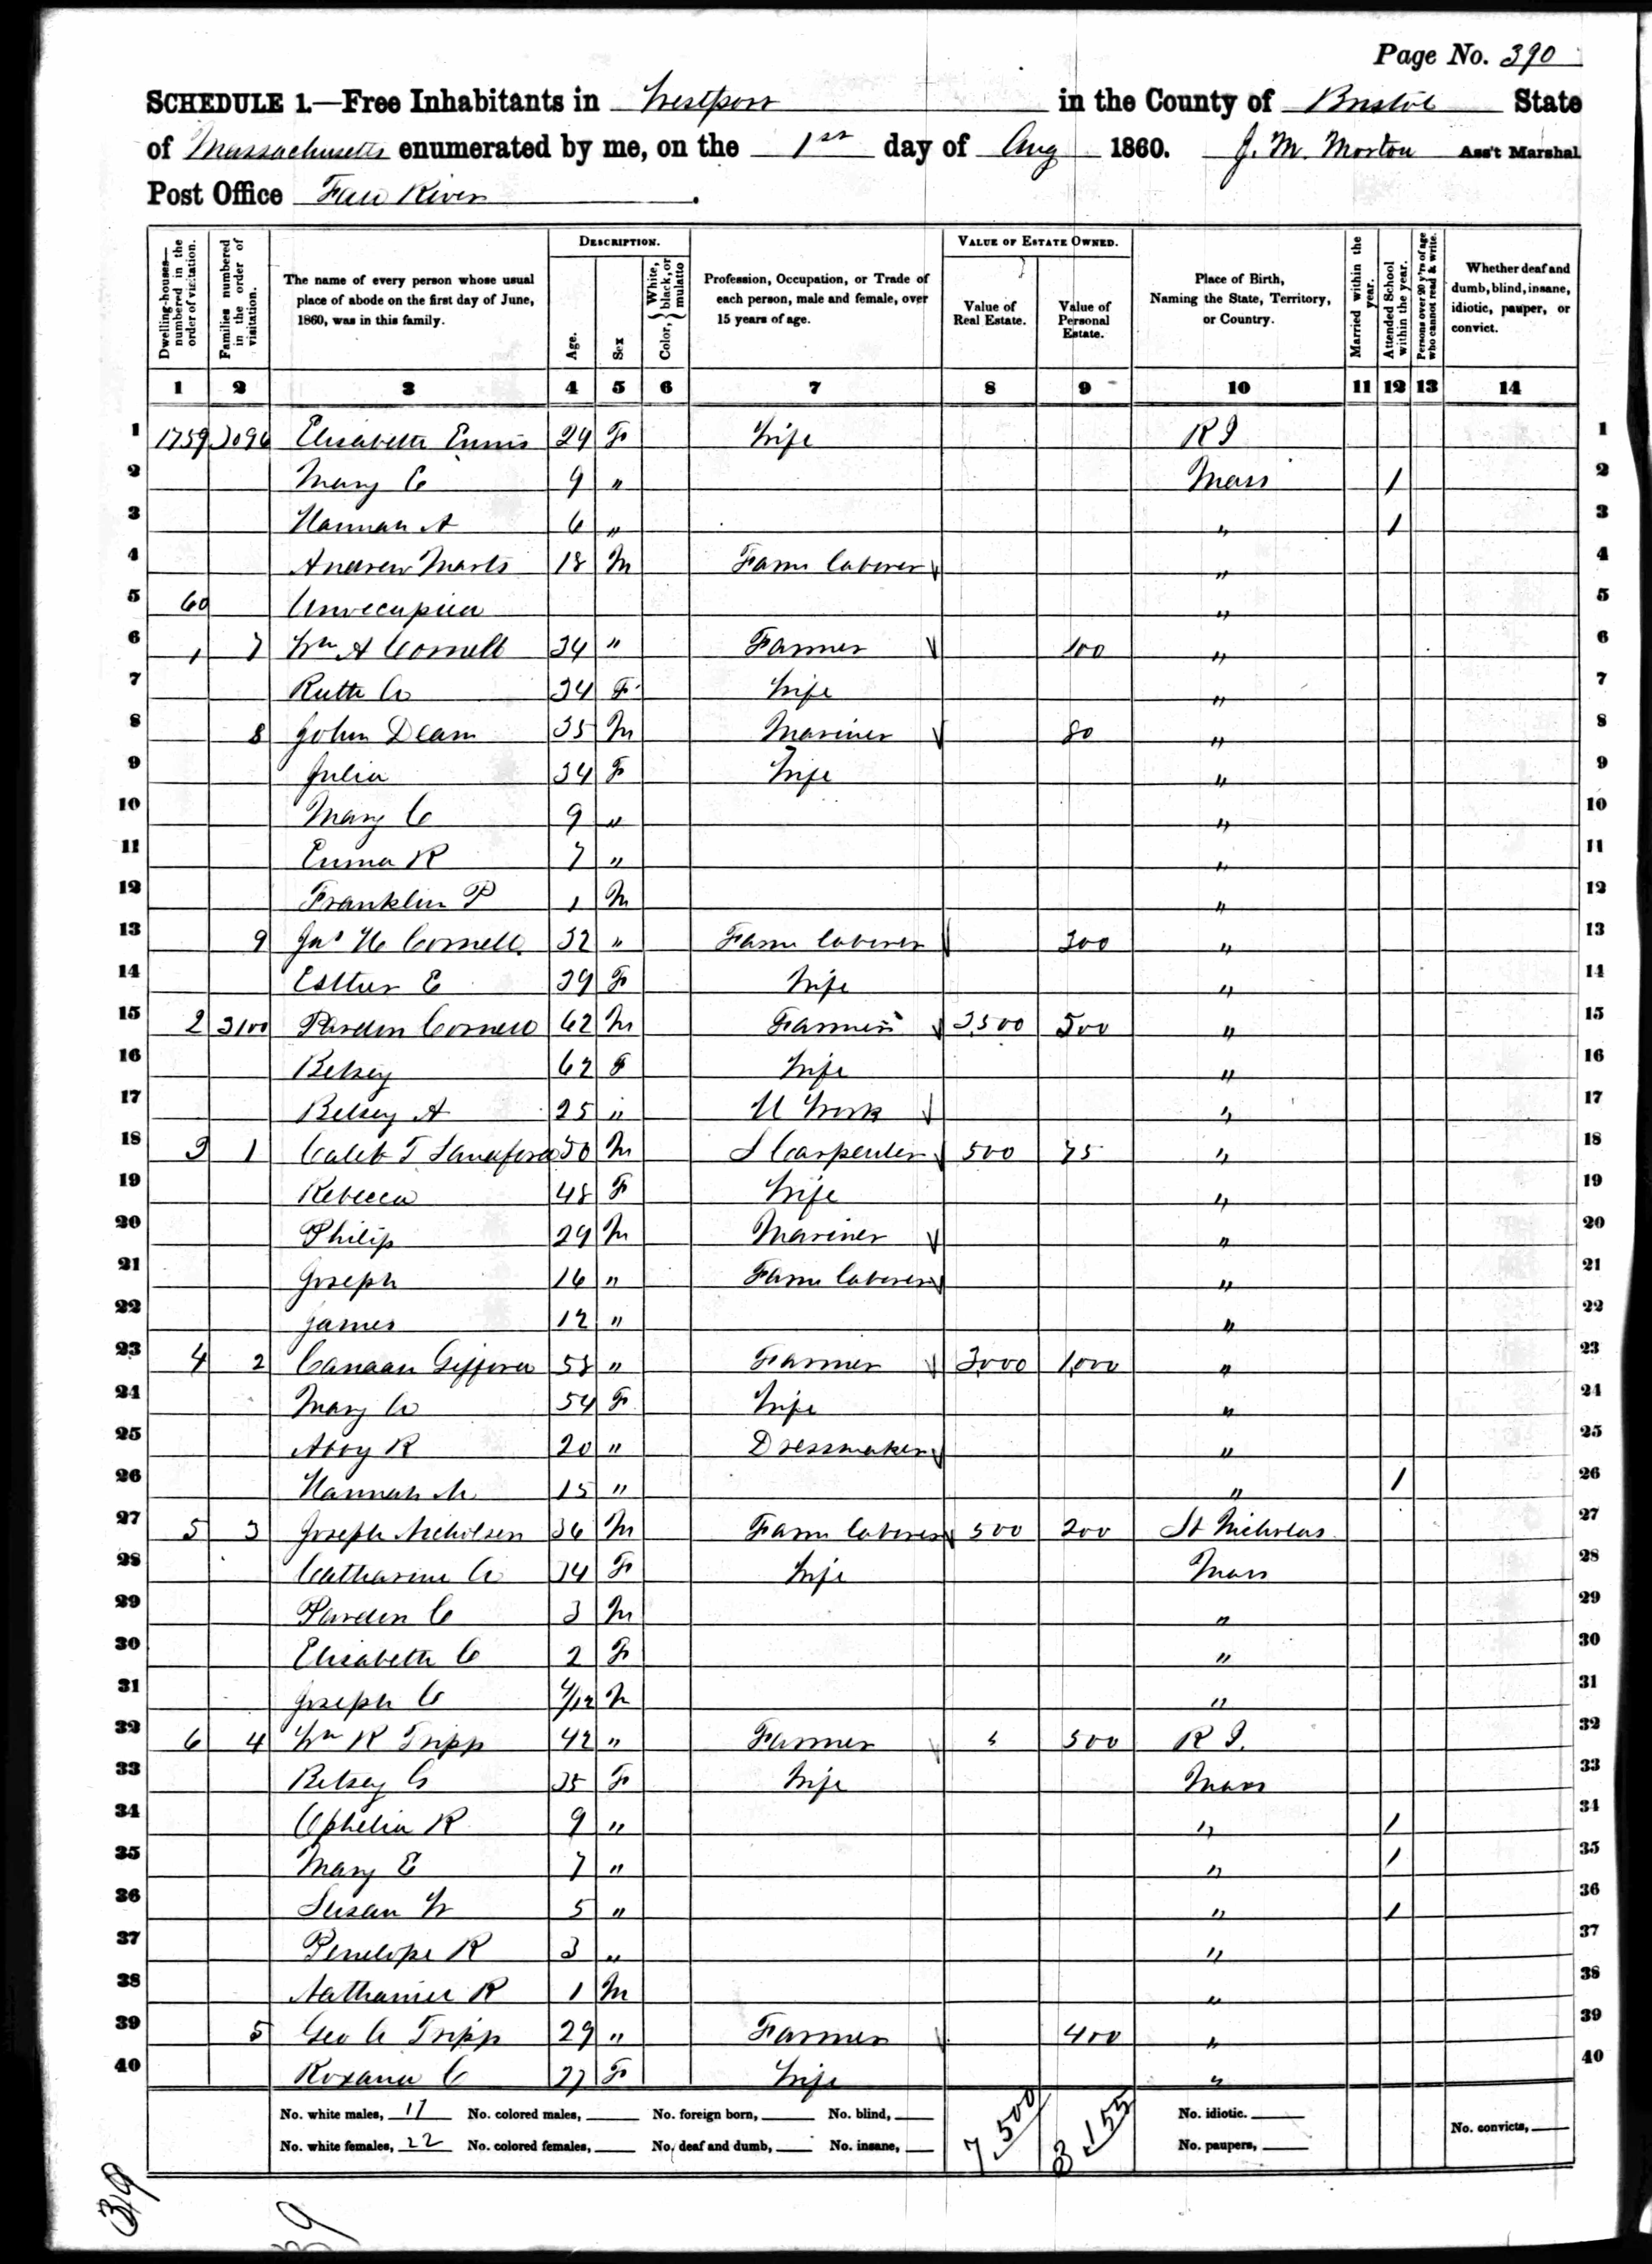 Page No. 390
SCHEDULE 1.—Free Inhabitants in Westport in the County of Bristol State
of Massachusetts enumerated by me, on the 1st day of Aug 1860. J. M. Morton Ass't Marshal
Post Office Fall River.
Dwelling-houses—numbered in the order of visitation. Families numbered in the order of visitation. The name of every person whose usual place of abode on the first day of June, 1860, was in this family. DESCRIPTION. Age. Sex Color, White, black, or mulatto Profession, Occupation, or Trade of each person, male and female, over 15 years of age. VALUE OF ESTATE OWNED. Value of Real Estate. Value of Personal Estate. Place of Birth, Naming the State, Territory, or Country. Married within the year. Attended School within the year. Persons over 20 y'rs of age who cannot read & write. Whether deaf and dumb, blind, insane, idiotic, pauper, or convict.
1 2 3 4 5 6 7 8 9 10 11 12 13 14
1 1759 3096 Elisabeth Ennis 29 F Wife R I 1
2 Mary C 9 " Mass / 2
3 Hannah A 6 " " / 3
4 Andrew 18 M Farm laborer " 4
5 60 Unoccupied " 5
6 1 7 Wm A Cornell 34 " Farmer 100 " 6
7 Ruth 34 F Wife " 7
8 8 John Dean 35 M Mariner 80 " 8
9 Julia 34 F Wife " 9
10 Mary C 9 " " 10
11 Emma R 7 " " 11
12 Franklin P 1 M " 12
13 9 Jas H Cornell 32 " Farm laborer 300 " 13
14 Esther E 39 F Wife " 14
15 2 3100 Pardon Cornell 62 M Farmer 3,500 500 " 15
16 Betsey 62 F Wife " 16
17 Betsey A 25 " H Work " 17
18 3 1 Caleb T Sandford 50 M S Carpenter 500 75 " 18
19 Rebecca 48 F Wife " 19
20 Philip 29 M Mariner " 20
21 Joseph 16 " Farm laborer " 21
22 James 12 " " 22
23 4 2 Canaan Gifford 58 " Farmer 3,000 1,000 " 23
24 Mary 54 F Wife " 24
25 Abby R 20 " Dressmaker " 25
26 Hannah M 15 " " / 26
27 5 3 Joseph Nicholsen 36 M Farm laborer 500 200 St Nicholas 27
28 Catharine 34 F Wife Mass 28
29 Pardon C 3 M " 29
30 Elisabeth C 2 F " 30
31 Joseph C /12 M " 31
32 6 4 Wm R Tripp 42 " Farmer 500 R I. 32
33 Betsey G 35 F Wife Mass 33
34 Ophelia R 9 " " / 34
35 Mary E 7 " " / 35
36 Susan W 5 " " / 36
37 Penelope R 3 " " 37
38 Nathaniel R 1 M " 38
39 5 Geo Tripp 29 " Farmer 400 " 39
40 Roxana C 27 F Wife " 40
No. white males, 17 No. colored males, No. foreign born, No. blind, 7,500 3,155 No. idiotic.
No. white females, 22 No. colored females, No. deaf and dumb, No. insane, No. paupers, No. convicts,
319
39